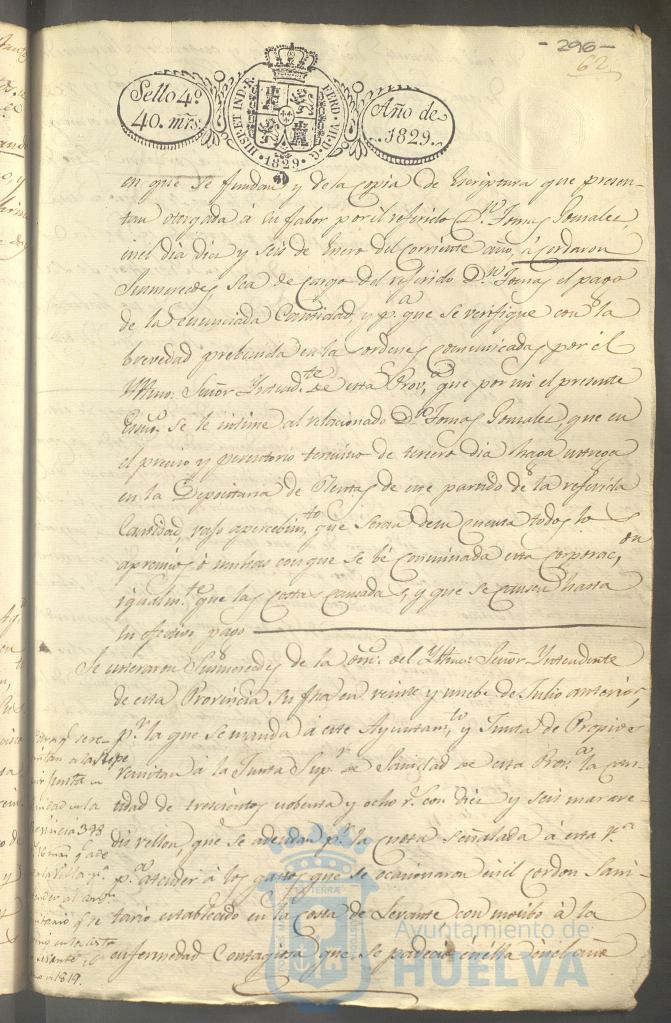 - 296 -
62
Sello 4º
40. mrs.
HISP. ET IND. R.
FERD. VII D. G.
1829
Año de
1829.
en que se fundan y de la copia de Escriptura que presen-
tan otorgada á su fabor por el referido Dn. Tomas Gonzalez,
en el dia diez y seis de Enero del corriente año, acordaron
Sus mercedes sea de cargo del referido Dn. Tomas el pago
de la enunciada Cantidad, y pa. que se verifique con la
brevedad prebenida en las ordenes comunicadas por el
Yltmo. Señor Intendte. de esta Prova. que por mi el presente
Essno. se le intime al relacionado Dn. Tomas Gonzalez, que en
el preciso y perentorio termino de tercero dia haga entrega
en la Depositaria de Rentas de este partido de la referida
Cantidad, vajo apercebimto. que seran de su cuenta todos los
apremios ó multas con que se bé conminada esta Corporacon
igualmte. que las Costas causadas, y que se causen hasta
su efectivo pago
Se enteraron Sus mercedes de la orn. del Yltmo. Señor Yntendente
de esta Provincia su fha en veinte y nuebe de Julio anterior,
pr. la que se manda á este Ayuntamto. y Junta de Propios
remitan á la Junta Supr. de Sanidad de esta Prova. la can-
tidad de trescientos nobenta y ocho rs. con diez y seis marave-
dis vellon, que se adeudan pr. la cuota señalada á esta Va.
pa. atender á los gastos que se ocasionaron en el cordon Sani-
tario establecido en la Costa de Levante con motibo á la
enfermedad Contagiosa que se padeció en ella en el año
a la Supe-
Junta
Sanidad en la
Provincia 398
de 1819.
Ayuntamiento de
HUELVA